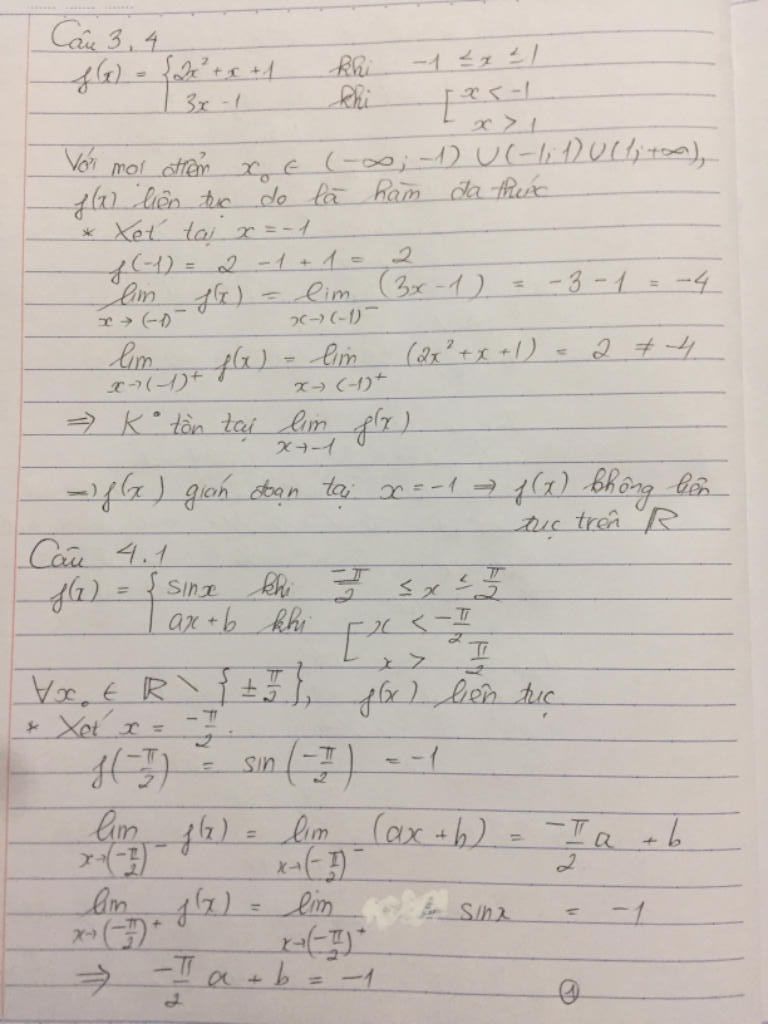 Câu 3.4
f(x) = { 2x² + x + 1 khi -1 ≤ x ≤ 1
3x - 1 khi [ x < -1
x > 1
Với mọi điểm x₀ ∈ (-∞; -1) ∪ (-1; 1) ∪ (1; +∞),
f(x) liên tục do là hàm đa thức
* Xét tại x = -1
f(-1) = 2 - 1 + 1 = 2
lim x→(-1)⁻ f(x) = lim x→(-1)⁻ (3x - 1) = -3 - 1 = -4
lim x→(-1)⁺ f(x) = lim x→(-1)⁺ (2x² + x + 1) = 2 ≠ -4
⇒ K° tồn tại lim x→-1 f(x)
⇒ f(x) gián đoạn tại x = -1 ⇒ f(x) không liên
tục trên ℝ
Câu 4.1
f(x) = { sinx khi -π/2 ≤ x ≤ π/2
ax + b khi [ x < -π/2
x > π/2
∀x₀ ∈ ℝ \ {± π/2}, f(x) liên tục
* Xét x = -π/2.
f(-π/2) = sin(-π/2) = -1
lim x→(-π/2)⁻ f(x) = lim x→(-π/2)⁻ (ax + b) = -π/2 a + b
lim x→(-π/2)⁺ f(x) = lim x→(-π/2)⁺ sinx = -1
⇒ -π/2 a + b = -1 ①